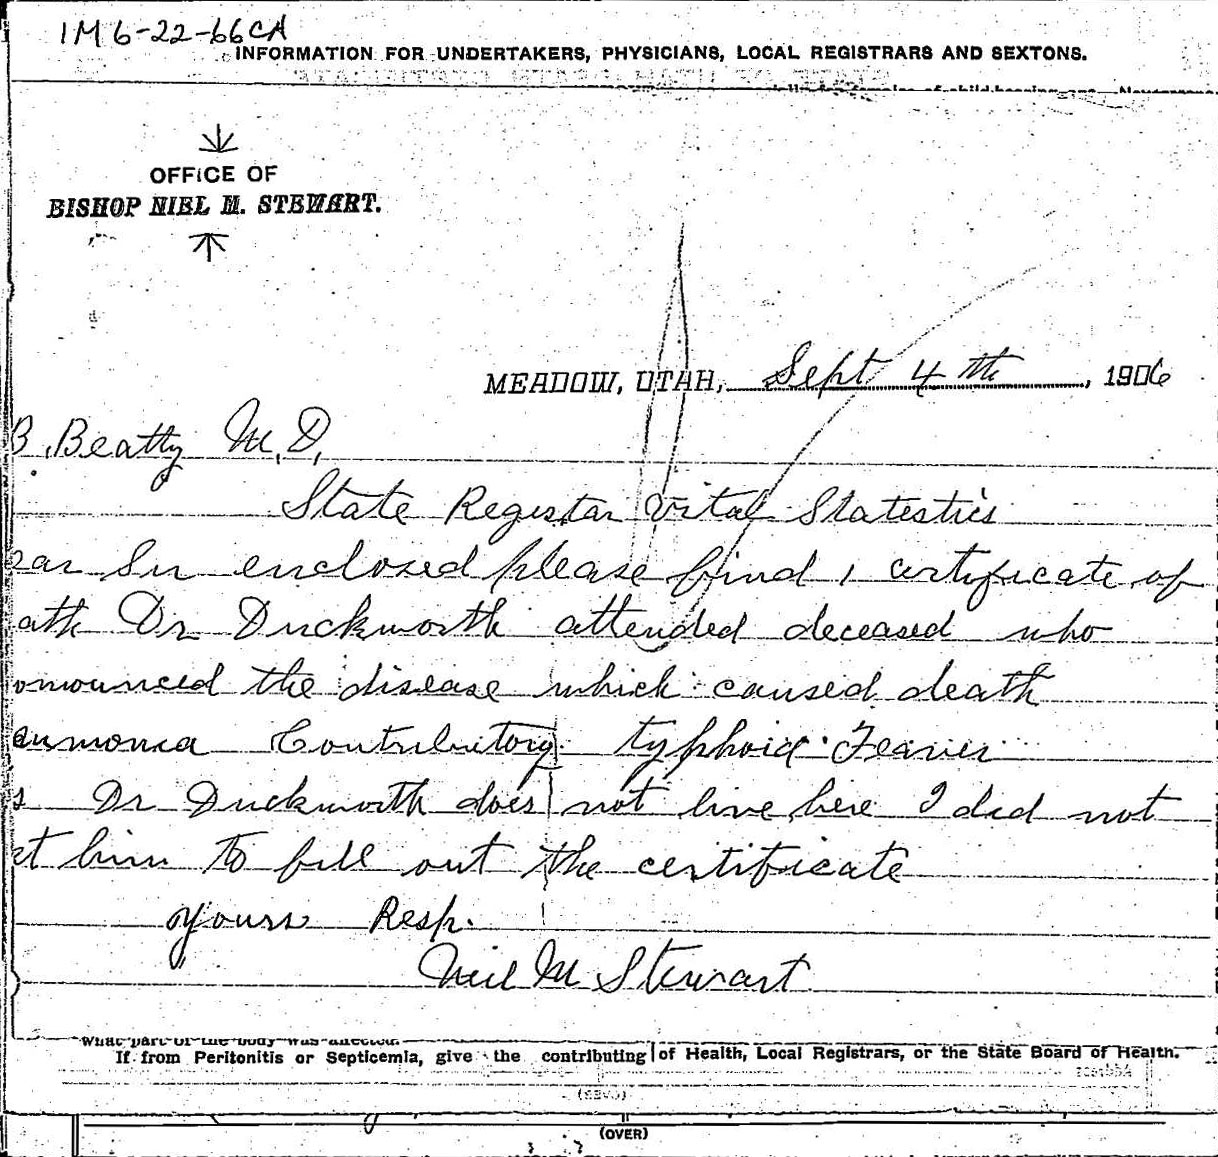 1M 6-22-66CA
INFORMATION FOR UNDERTAKERS, PHYSICIANS, LOCAL REGISTRARS AND SEXTONS.
OFFICE OF
BISHOP NIEL M. STEWART.
MEADOW, UTAH, Sept 4th, 1906
B. Beatty M.D,
State Registar Vital Statestics
ear Sir enclosed please find 1 certificate of
ath Dr Duckworth attended deceased who
onounced the disease which caused death
eumonia Contributory typhoid Feaver
s Dr Duckworth does not live here I did not
et him to fill out the certificate
yours Resp.
Neil M Stewart
What part of the body was affected.
If from Peritonitis or Septicemia, give the contributing of Health, Local Registrars, or the State Board of Health.
(OVER)